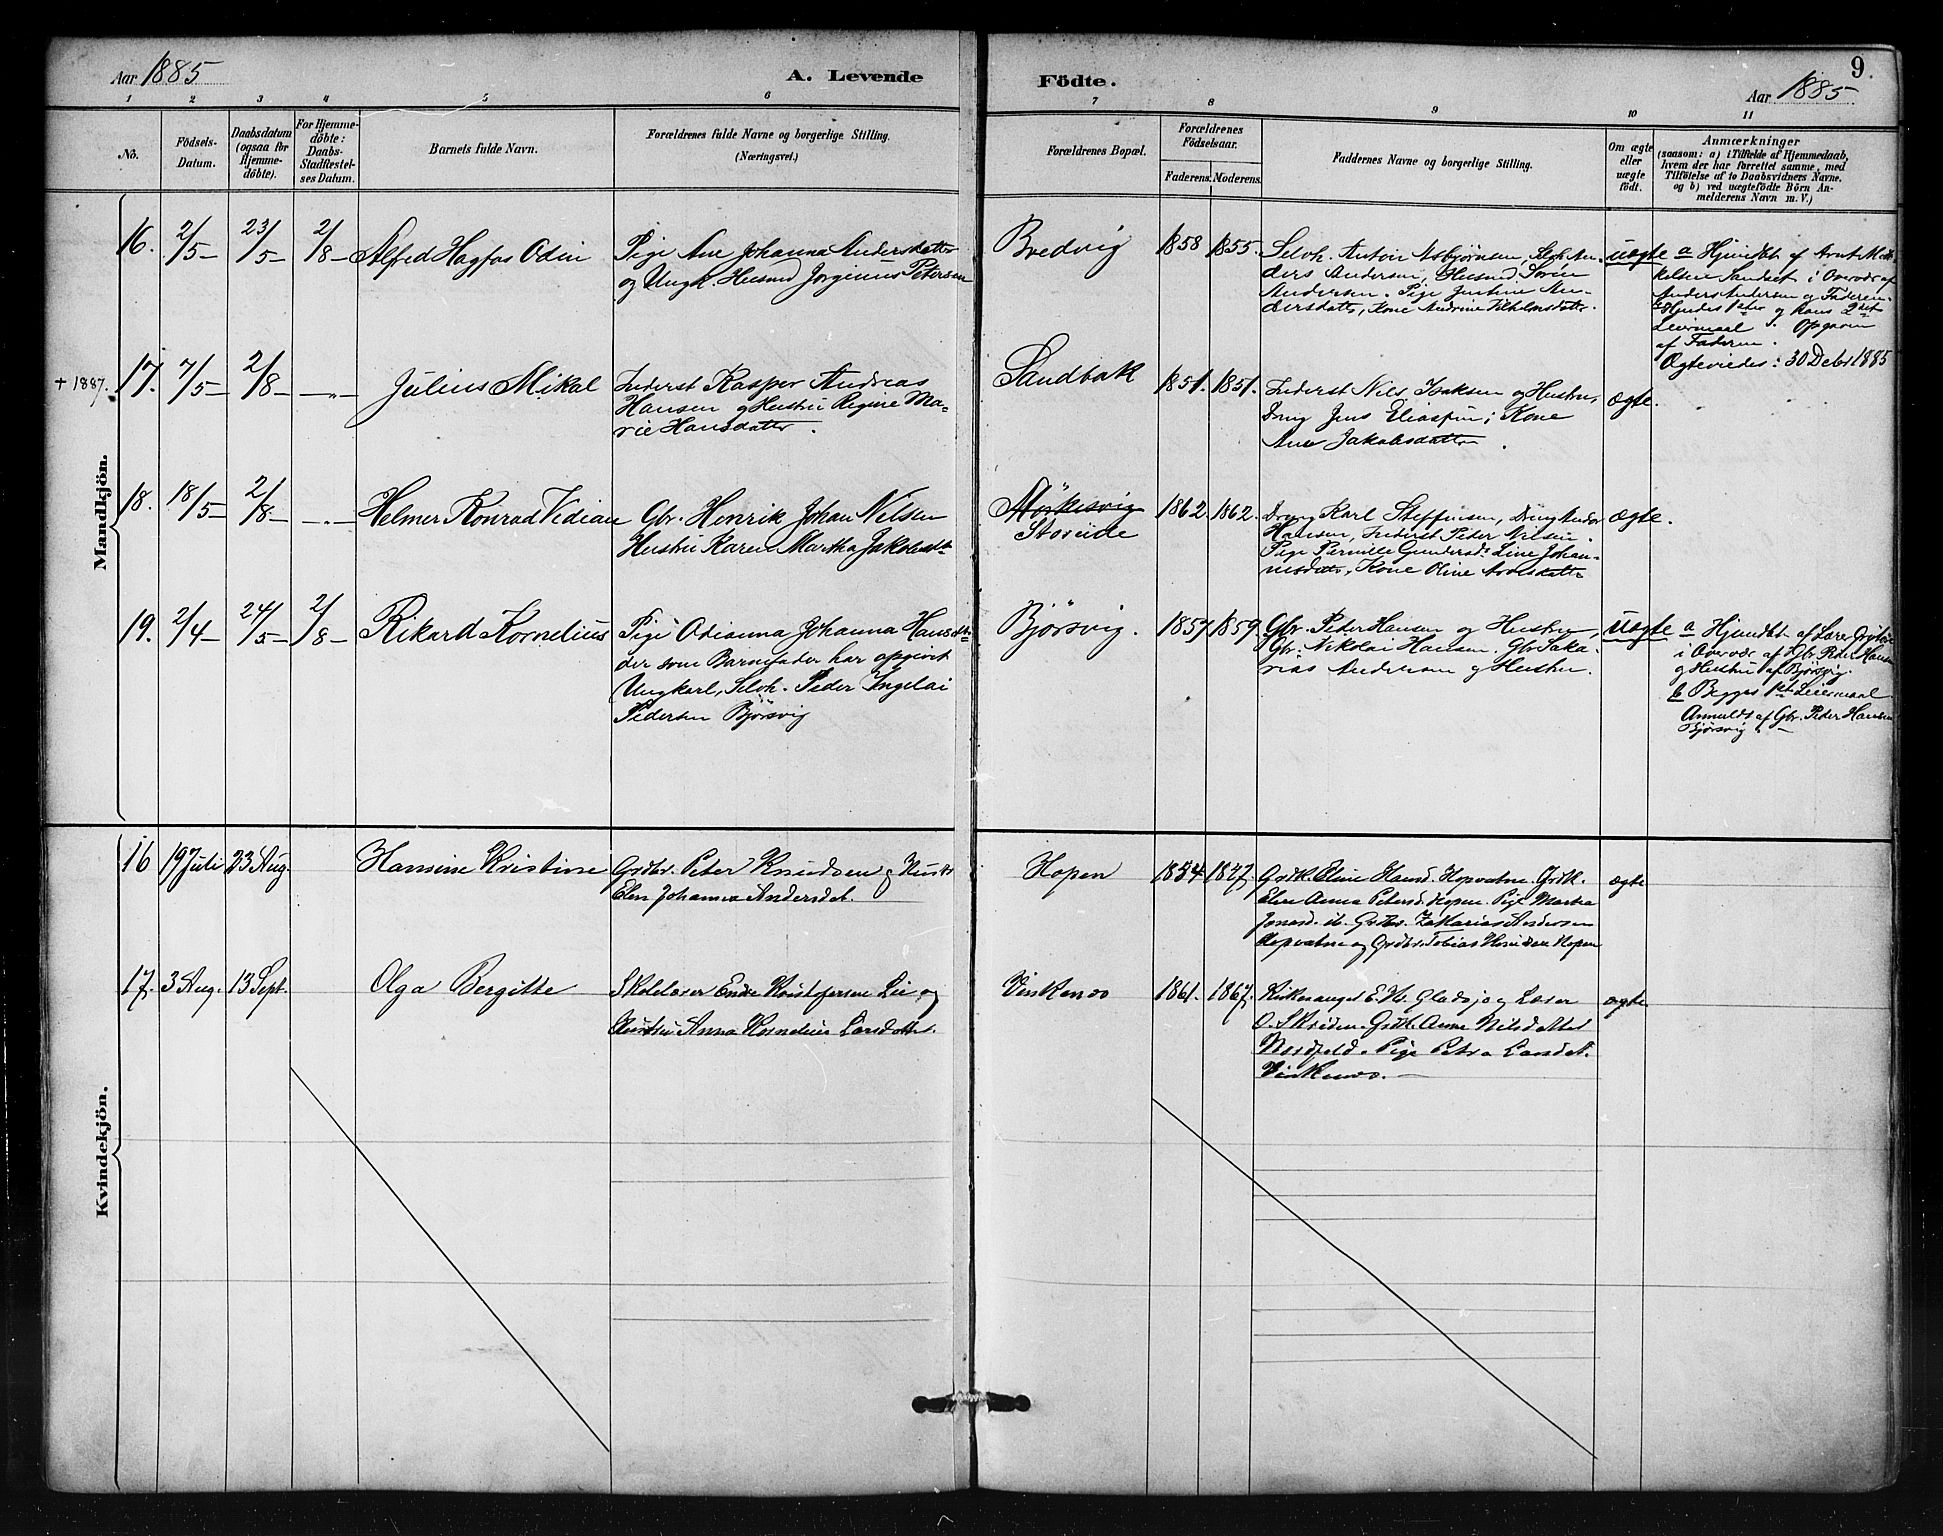 Aar 1885
A. Levende
Födte.
9.
Aar 1885
1 2 3 4 5 6 7 8 9 10 11
No.
Födsels-
Datum.
Daabsdatum
(ogsaa for
Hjemme-
döbte).
For Hjemme-
döbte:
Daabs-
Stadfæstel-
ses Datum.
Barnets fulde Navn.
Forældrenes fulde Navne og borgerlige Stilling.
(Næringsvei.)
Forældrenes Bopæl.
Forældrenes
Födselsaar.
Faderens. Moderens.
Faddernes Navne og borgerlige Stilling.
Om ægte
eller
uægte
födt.
Anmærkninger
(saasom: a) i Tilfælde af Hjemmedaab,
hvem der har forrettet samme, med
Tilföielse af to Daabsvidners Navne,
og b) ved uægtefödte Börn An-
melderens Navn m. V.)
Mandkjön.
16. 2/5 23/5 2/8 Alfred Hagfas Odin
Pige Ane Johanna Andersdatter
og Ungk. Husmd Jørgenius Petersen
Bredvig
1858 1855
Selvh. Anton Asbjørnsen, Selvh. An-
ders Andersen, Husmd Søren
Andersen. Pige Justine An-
dersdatter, Kone Andrine Vilhelmsdatter.
uægte
a Hjemdøbt af Arnt Mik-
kelsen Sandset i Overvær af
Anders Andersen og Faderen.
b Hendes 1ste og hans 2det
Leiermaal. Opgaven
af Faderen.
Ægteviedes: 30 Debr 1885
+ 1887.
17. 7/5 2/8 Julius Mikal
Inderst Kasper Andreas
Hansen og Hustru Regine Ma-
rie Hansdatter.
Sandbak
1851. 1851.
Inderst Nils Isaksen og Hustru,
Dreng Jens Eliassen; Kone
Ane Jakobsdatter.
ægte.
18. 18/5 2/8 Helmer Konrad Vidian
Gbr. Henrik Johan Nilsen
Hustru Karen Martha Jakobsdt
Mørkesvig
Storeide
1862. 1862.
Dreng Karl Steffensen, Dreng Andor
Hansen, Inderst Peder Nilsen.
Pige Pernille Gundersdt Line Johan-
nesdatter, Kone Oline Arntsdatter
ægte.
19. 2/4 24/5 2/8 Rikard Kornelius
Pige Odianna Johanna Hansdt
der som Barnefader har opgivet
Ungkarl, Selvh. Peder Ingelai
Pedersen Bjørsvig
Bjørsvig.
1857 1859.
Gbr. Peter Hansen og Hustru,
Gbr. Nikolai Hansen. Gbr Saka-
rias Andersen og Hustru.
uægte
a Hjemdøbt af Lærer
i Overvær af Gbr. Peder Hansen
og Hustru af Bjørsvig.
b Begges 1ste Leiermaal.
Anmeldt af Gbr. Peder Hansen
Bjørsvig.
Kvindekjön.
16 19 Juli 23 Aug. Hansine Kristine
Grdbr. Peter Knudsen og Hustr
Elen Johanna Andersdat.
Hopen
1834 1827.
Grdk. Eline Hansd. Hopvatne. Grdk.
Elen Anna Petersd. Hopen. Pige Martha
Jonasd. ib. Grdbr. Zakarias Andersen
Hopvatne og Grdbr. Tobias Knudsen Hopen
ægte
17. 3 Aug. 13 Sept. Olga Bergitte
Skolelærer Endre Kristofersen Lie og
Hustru Anna Kornelius Larsdatter.
Vinkenæs
1861. 1867.
Kirkesanger E. H. Gladsjø og Lærer
O. Skreden. Grdk. Anne Nilsdatter
Nordfjeld. Pige Petra Larsdat.
Vinkenæs.
ægte